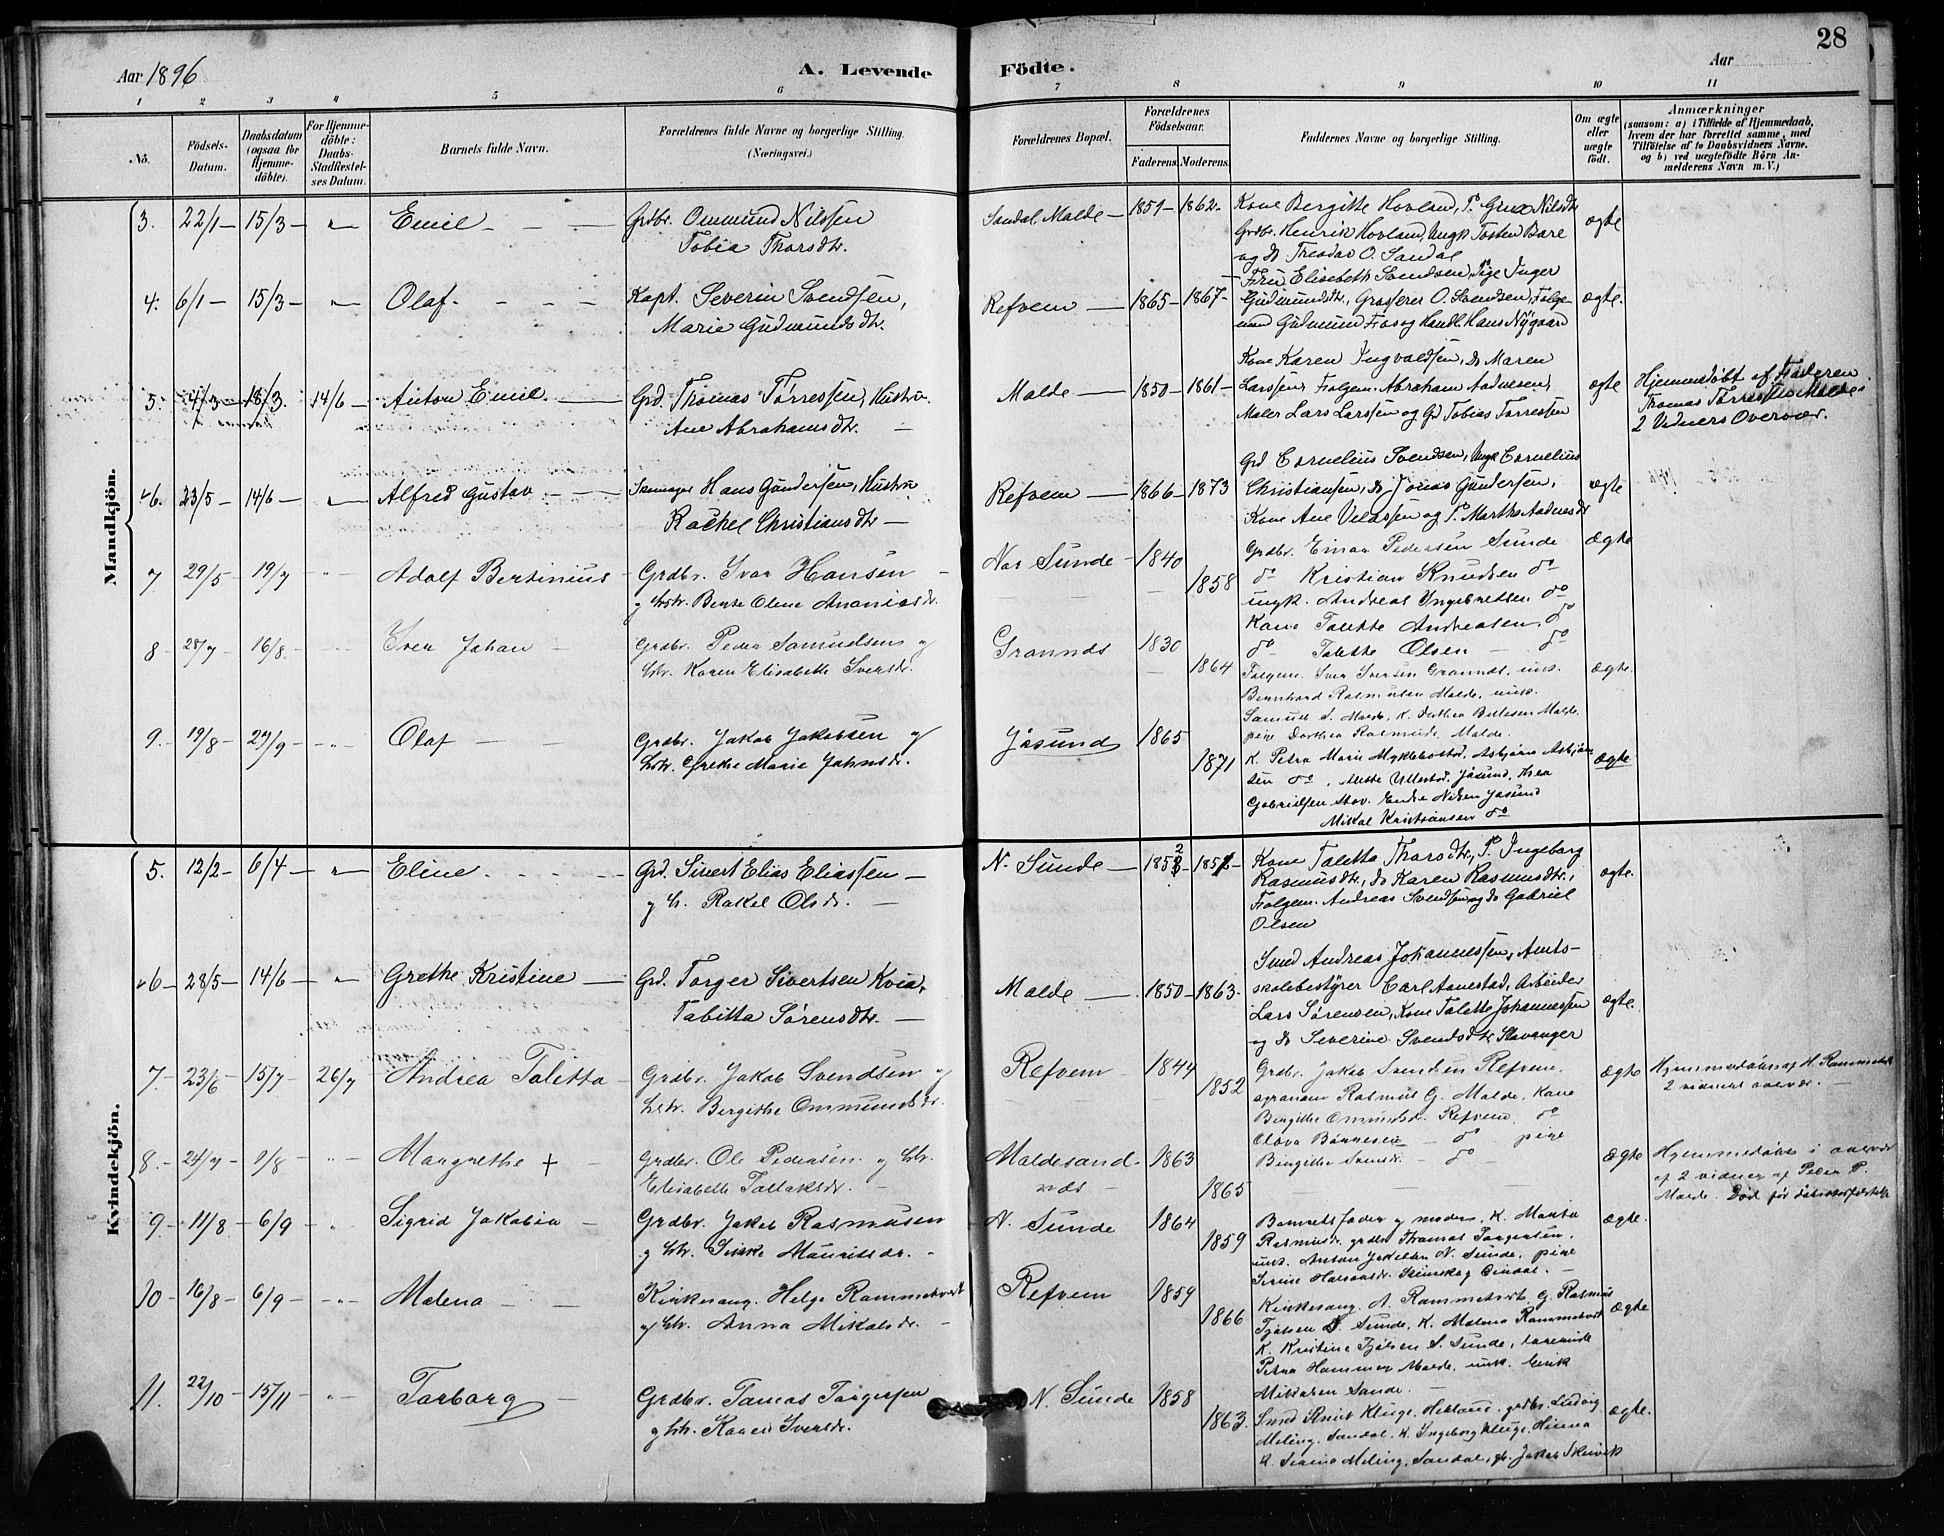 28
Aar 1896 A. Levende Födte. Aar
1 2 3 4 5 6 7 8 9 10 11
No.
Födsels-Datum.
Daabsdatum (ogsaa for Hjemme-döbte).
For Hjemme-döbte: Daabs-Stadfæstel-ses Datum.
Barnets fulde Navn.
Forældrenes fulde Navne og borgerlige Stilling. (Næringsvei.)
Forældrenes Bopæl.
Forældrenes Födselsaar.
Faderens. Moderens.
Faddernes Navne og borgerlige Stilling.
Om ægte eller uægte födt.
Anmærkninger
(saasom: a) i Tilfælde af Hjemmedaab,
hvem der har forrettet samme, med
Tilföielse af to Daabsvidners Navne.
og b) ved uægtefödte Börn An-
melderens Navn m. V.)
Mandkjön.
3. 22/1 15/3 " Emil Grdbr. Ommund Nilssen
Tobia Thorsdtr.
Sandal, Malde 1859 1862
Kone Bergitte Hovland, P.
Grdbr. Henrik Hovland, Ungk Tosten Bore
og do Theodor O. Sandal
ægte
4. 6/1 15/3 " Olaf Kapt. Severin Svendsen,
Marie Gudmundsdtr.
Refvem 1865 1867
Fru Elisabeth Svendsen, Pige Inger
Gudmundsdtr, Grosserer O. Svendsen, Folge-
mand Gudmund og Handl. Hans Nygaard
ægte.
5. 4/3 18/3 14/6 Anton Emil Grd. Thomas Tørressen, Hustru
Ane Abrahamsdtr.
Malde 1850 1861
Kone Karen Ingvaldsen, do Maren
Larssen, Folgem. Abraham Aadnesen,
Maler Lars Larssen og Grd Tobias Tørressen
ægte
Hjemmedøbt af Faderen
Thomas Tørressen Malde i
2 Vidners Overvær.
6. 23/5 14/6 " Alfred Gustav Hans Gundersen, Hustru
Rachel Christiansdtr
Refvem 1866 1873
Grd Cornelius Svendsen, Ungk Cornelius
Christiansen, do Jonas Gundersen,
Kone Ane og P. Marthe Aadnesdtr
ægte
7 29/5 19/7 " Adolf Bertinius Grdbr. Ivar Hansen
og hstr. Berte Oline Ananiasdr.
Nor Sunde 1840 1858
Grdbr. Einar Pedersen Sunde
do Kristian Knudsen do
ungk. Andreas Ingebretsen do
Kone Talette Andreasen do
do Talette Olsen do
Ægte
8 28/7 16/8 " Iver Johan Grdbr. Peder Samuelsen og
hstr. Karen Elisabethe Iversdr.
Grannds 1830 1864
Folgem. Iver Iversen Grannds, unk.
Bernhard Rasmusen Malde, unk.
Samuel S. Malde, K. Dorthea Malde
pige Dorthea Rasmusd. Malde.
Ægte.
9. 19/8 27/9 " Olaf Grdbr. Jakob Jakobsen og
hstr. Grethe Marie Johnsdr.
Jåsund 1865 1871
K. Petra Marie Myklebostad, Asbjørn Asbjørn-
sen do, Mette Ullestad, Jåsund, Thea
Gabrielsen Stav. Endre Nilsen Jasund
Mikal Kristiansen do
Ægte
Kvindekjön.
5. 12/2 6/4 " Eline Grd. Sivert Elias Eliassen
og h. Rakel Olsdr.
N. Sunde 1852 1851
Kone Taletta Thorsdtr, P. Ingeborg
Rasmusdtr, do Karen Rasmusdtr,
Folgem. Andreas Svendsen og do Gabriel
Olsen
ægte.
6 28/5 14/6 " Grethe Kristine Grd. Torger Sivertsen Kvia,
Tabitta Sørensdtr.
Malde 1850 1863.
Smed Andreas Johannessen, Amts-
skolebestyrer Carl Aanestad, Arbeider
Lars Sørensen, Kone Talette Johannessen
og do Severine Svendsdtr Stavanger
ægte.
7. 23/6 15/7 26/7 Andrea Taletta Grdbr. Jakob Svendsen og
hstr. Bergithe Ommundsdr.
Refvem 1844 1852
Grdbr. Jakob Svendsen Refvem.
agranom Rasmus G. Malde, Kone
Birgithe Ommundsd. Refvem,
Olava do pige
Birgithe Svensdr do
Ægte
2 vidners overvær.
8. 24/7 9/8 " Margrethe + Grdbr. Ole Pedersen og hstr.
Elisabeth Tollaksdr.
Maldesand-
næs
1863 1865
Ægte
Hjemmedøbt i overvær
af 2 vidner af Peder P.
Malde. Død før
9 11/8 6/9 " Sigrid Jakobia Grdbr. Jakob Rasmusen
og hstr. Sirike Mauritsdr.
N. Sunde 1864 1859
Barnets fader og moder, K. Marta
Rasmusd. grdbr. Thomas Torgersen,
unk. Anton Jakobsen N. Sunde, pige
Serine
Ægte.
10 16/8 6/9 " Malena Kirkesang. Helge Rammetvedt
og hstr. Anna Mikalsdr.
Refvem 1859 1866
Kirkesang. H. Rammetvedt G. Rasmus
Tjølsen S. Sunde, K. Malena Rammetvedt
K. Kristine Tjølsen S. Sunde, lærerinde
Petra Hammer Malde, unk.
Mikalsen Sande.
Ægte
11. 22/10 15/11 " Torborg Grdbr. Tomas Torgersen
og hstr. Karen Iversdr.
N. Sunde 1858 1863.
Smed Knut Kluge, Hetland, grdbr. Ludvig
Meling, Sandal, K. Ingeborg Kluge, Hinna
K. Meling, Sandal, Jakob Skeivik
Ægte.